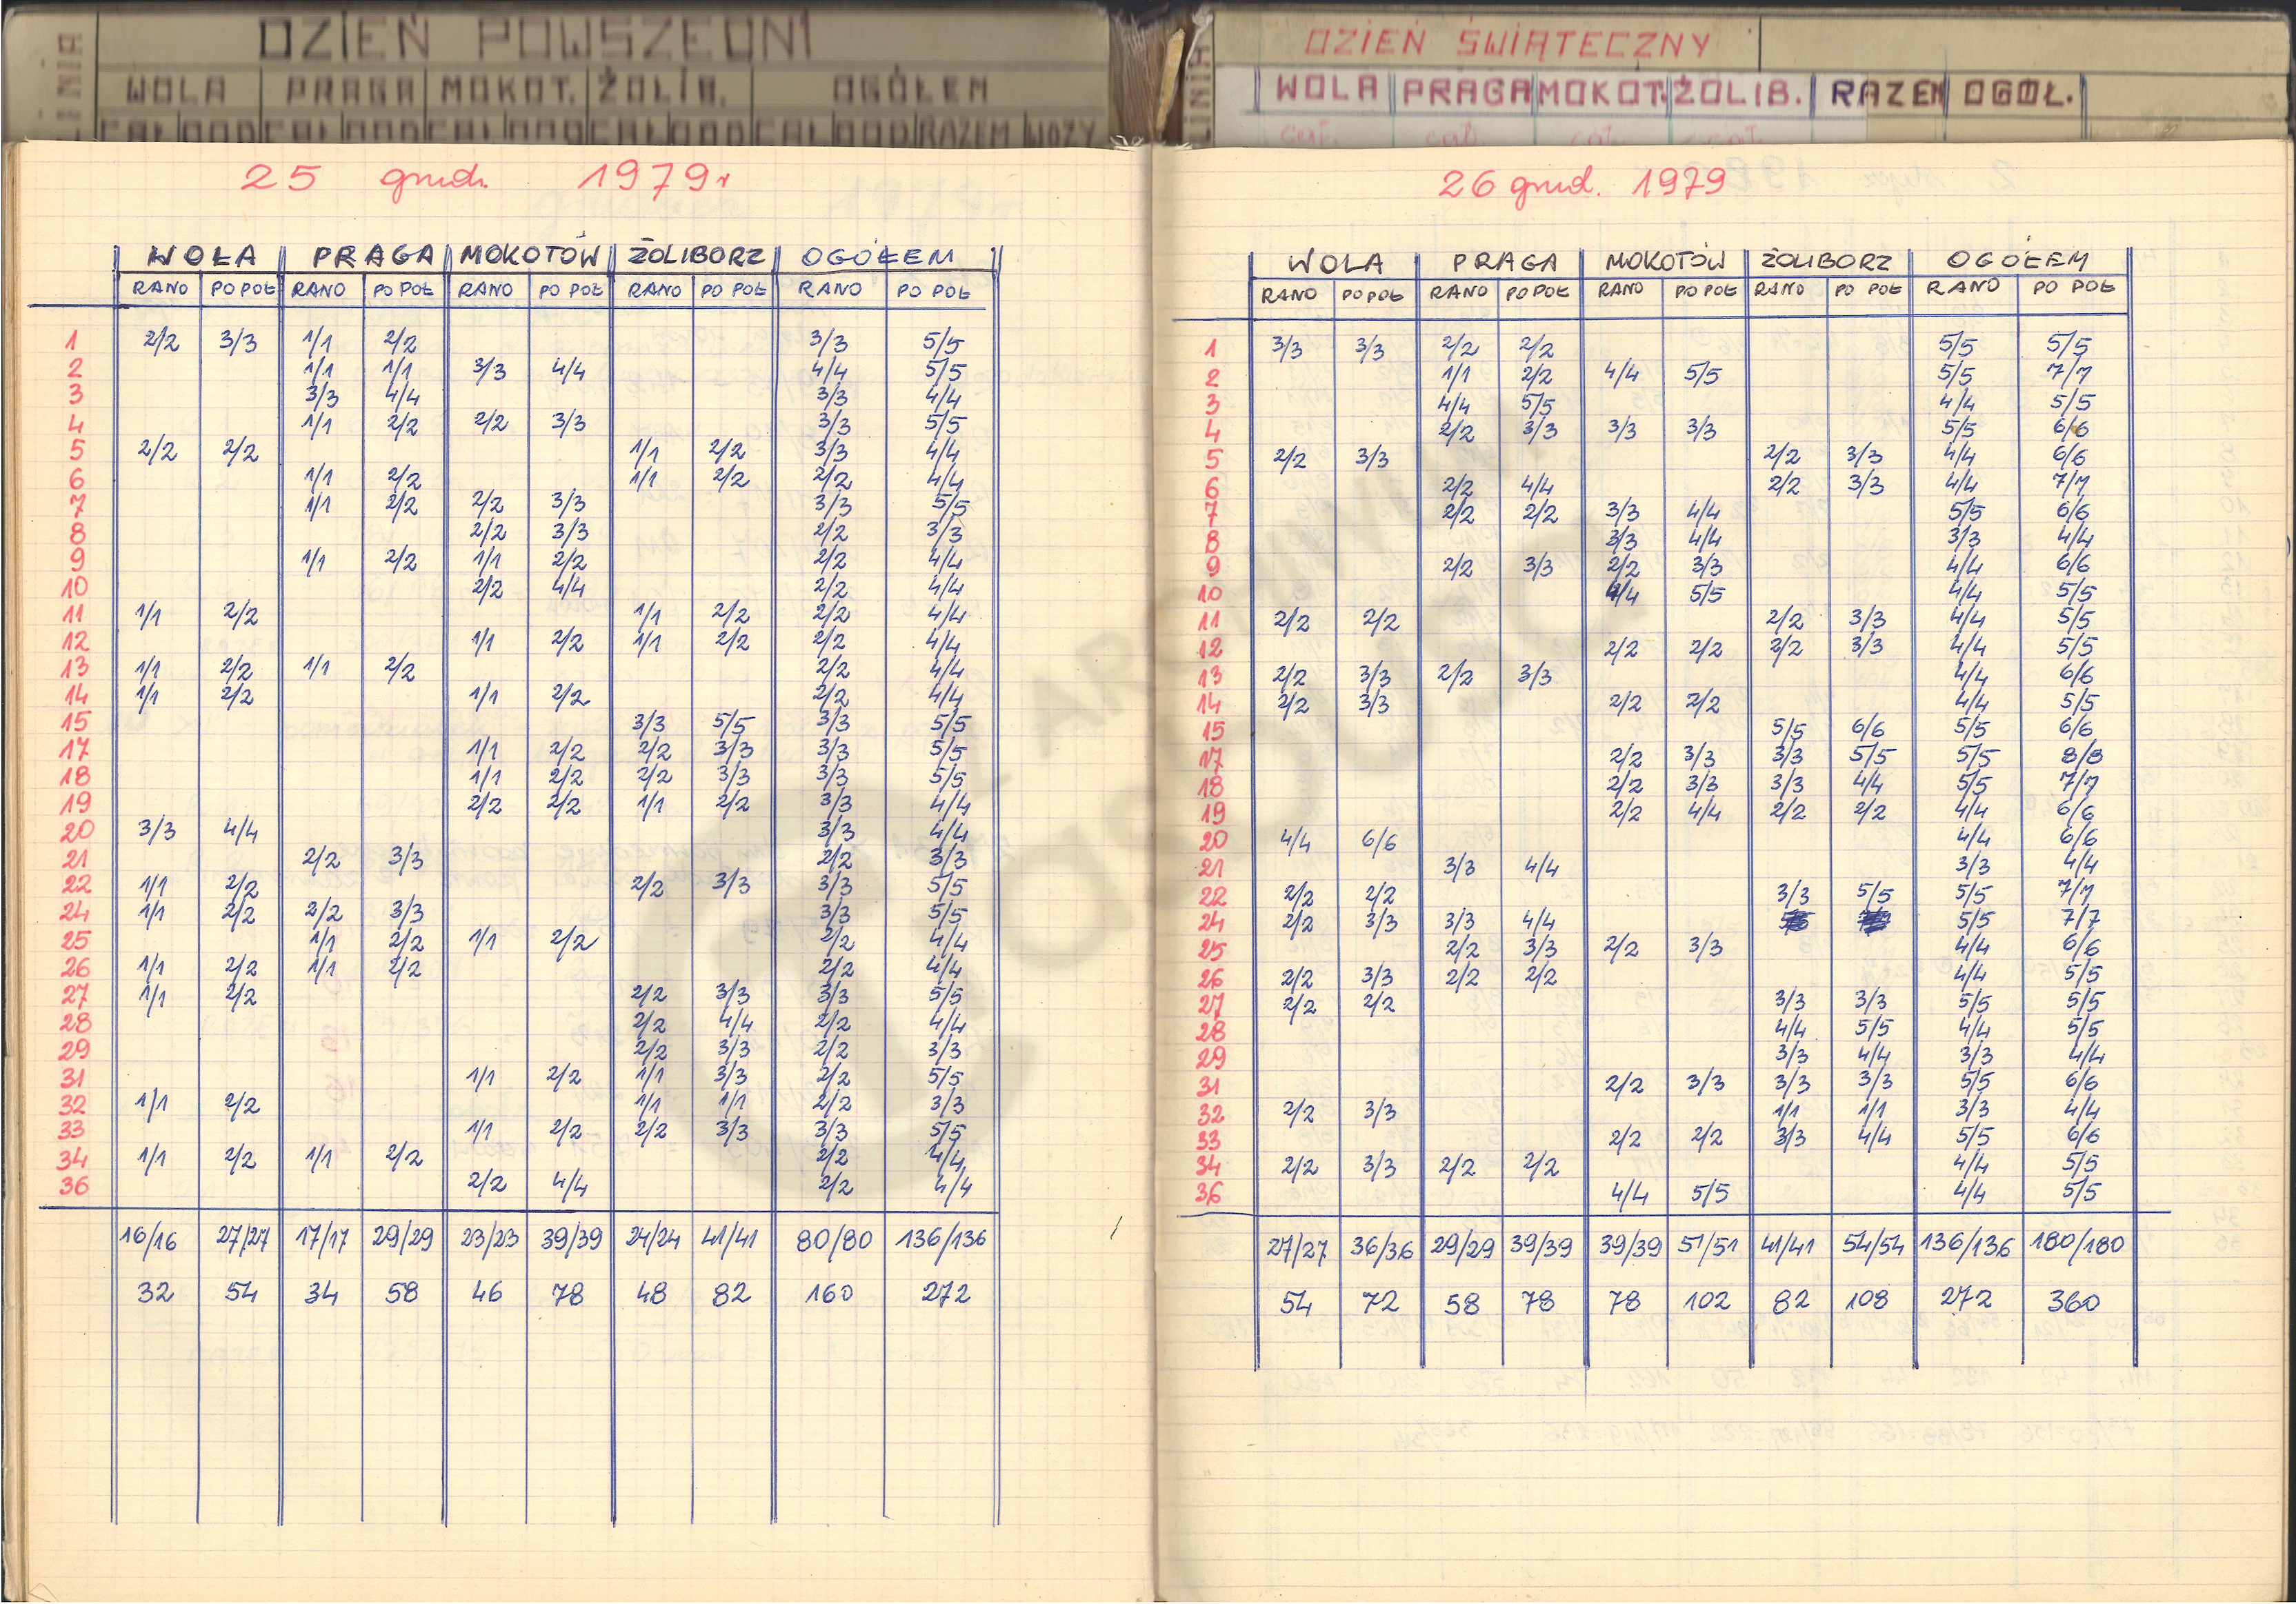 DZIEŃ POWSZEDNI
LINIA WOLA PRAGA MOKOT. ŻOLIB. OGÓŁEM
CAŁ DOD CAŁ DOD CAŁ DOD CAŁ DOD CAŁ DOD RAZEM WOZY
25 grud. 1979r
WOŁA PRAGA MOKOTÓW ŻOLIBORZ OGÓŁEM
RANO PO POŁ RANO PO POŁ RANO PO POŁ RANO PO POŁ RANO PO POŁ
1 2/2 3/3 1/1 2/2 3/3 5/5
2 1/1 1/1 3/3 4/4 4/4 5/5
3 3/3 4/4 3/3 4/4
4 1/1 2/2 2/2 3/3 3/3 5/5
5 2/2 2/2 1/1 2/2 3/3 4/4
6 1/1 2/2 1/1 2/2 2/2 4/4
7 1/1 2/2 2/2 3/3 3/3 5/5
8 2/2 3/3 2/2 3/3
9 1/1 2/2 1/1 2/2 2/2 4/4
10 2/2 4/4 2/2 4/4
11 1/1 2/2 1/1 2/2 2/2 4/4
12 1/1 2/2 1/1 2/2 2/2 4/4
13 1/1 2/2 1/1 2/2 2/2 4/4
14 1/1 2/2 1/1 2/2 2/2 4/4
15 3/3 5/5 3/3 5/5
17 1/1 2/2 2/2 3/3 3/3 5/5
18 1/1 2/2 2/2 3/3 3/3 5/5
19 2/2 2/2 1/1 2/2 3/3 4/4
20 3/3 4/4 3/3 4/4
21 2/2 3/3 2/2 3/3
22 1/1 2/2 2/2 3/3 3/3 5/5
24 1/1 2/2 2/2 3/3 3/3 5/5
25 1/1 2/2 1/1 2/2 2/2 4/4
26 1/1 2/2 1/1 2/2 2/2 4/4
27 1/1 2/2 2/2 3/3 3/3 5/5
28 2/2 4/4 2/2 4/4
29 2/2 3/3 2/2 3/3
31 1/1 2/2 1/1 3/3 2/2 5/5
32 1/1 2/2 1/1 1/1 2/2 3/3
33 1/1 2/2 2/2 3/3 3/3 5/5
34 1/1 2/2 1/1 2/2 2/2 4/4
36 2/2 4/4 2/2 4/4
16/16 27/27 17/17 29/29 23/23 39/39 24/24 41/41 80/80 136/136
32 54 34 58 46 78 48 82 160 272
DZIEŃ ŚWIĄTECZNY
LINIA WOLA PRAGA MOKOT. ŻOLIB. RAZEM OGÓŁ.
cał. cał. cał. cał.
26 grud. 1979
WOLA PRAGA MOKOTÓW ŻOLIBORZ OGÓŁEM
RANO PO POŁ RANO PO POŁ RANO PO POŁ RANO PO POŁ RANO PO POŁ
1 3/3 3/3 2/2 2/2 5/5 5/5
2 1/1 2/2 4/4 5/5 5/5 7/7
3 4/4 5/5 4/4 5/5
4 2/2 3/3 3/3 3/3 5/5 6/6
5 2/2 3/3 2/2 3/3 4/4 6/6
6 2/2 4/4 2/2 3/3 4/4 7/7
7 2/2 2/2 3/3 4/4 5/5 6/6
8 3/3 4/4 3/3 4/4
9 2/2 3/3 2/2 3/3 4/4 6/6
10 4/4 5/5 4/4 5/5
11 2/2 2/2 2/2 3/3 4/4 5/5
12 2/2 2/2 2/2 3/3 4/4 5/5
13 2/2 3/3 2/2 3/3 4/4 6/6
14 2/2 3/3 2/2 2/2 4/4 5/5
15 5/5 6/6 5/5 6/6
17 2/2 3/3 3/3 5/5 5/5 8/8
18 2/2 3/3 3/3 4/4 5/5 7/7
19 2/2 4/4 2/2 2/2 4/4 6/6
20 4/4 6/6 4/4 6/6
21 3/3 4/4 3/3 4/4
22 2/2 2/2 3/3 5/5 5/5 7/7
24 2/2 3/3 3/3 4/4 5/5 7/7
25 2/2 3/3 2/2 3/3 4/4 6/6
26 2/2 3/3 2/2 2/2 4/4 5/5
27 2/2 2/2 3/3 3/3 5/5 5/5
28 4/4 5/5 4/4 5/5
29 3/3 4/4 3/3 4/4
31 2/2 3/3 3/3 3/3 5/5 6/6
32 2/2 3/3 1/1 1/1 3/3 4/4
33 2/2 2/2 3/3 4/4 5/5 6/6
34 2/2 3/3 2/2 2/2 4/4 5/5
36 4/4 5/5 4/4 5/5
27/27 36/36 29/29 39/39 39/39 51/51 41/41 54/54 136/136 180/180
54 72 58 78 78 102 82 108 272 360